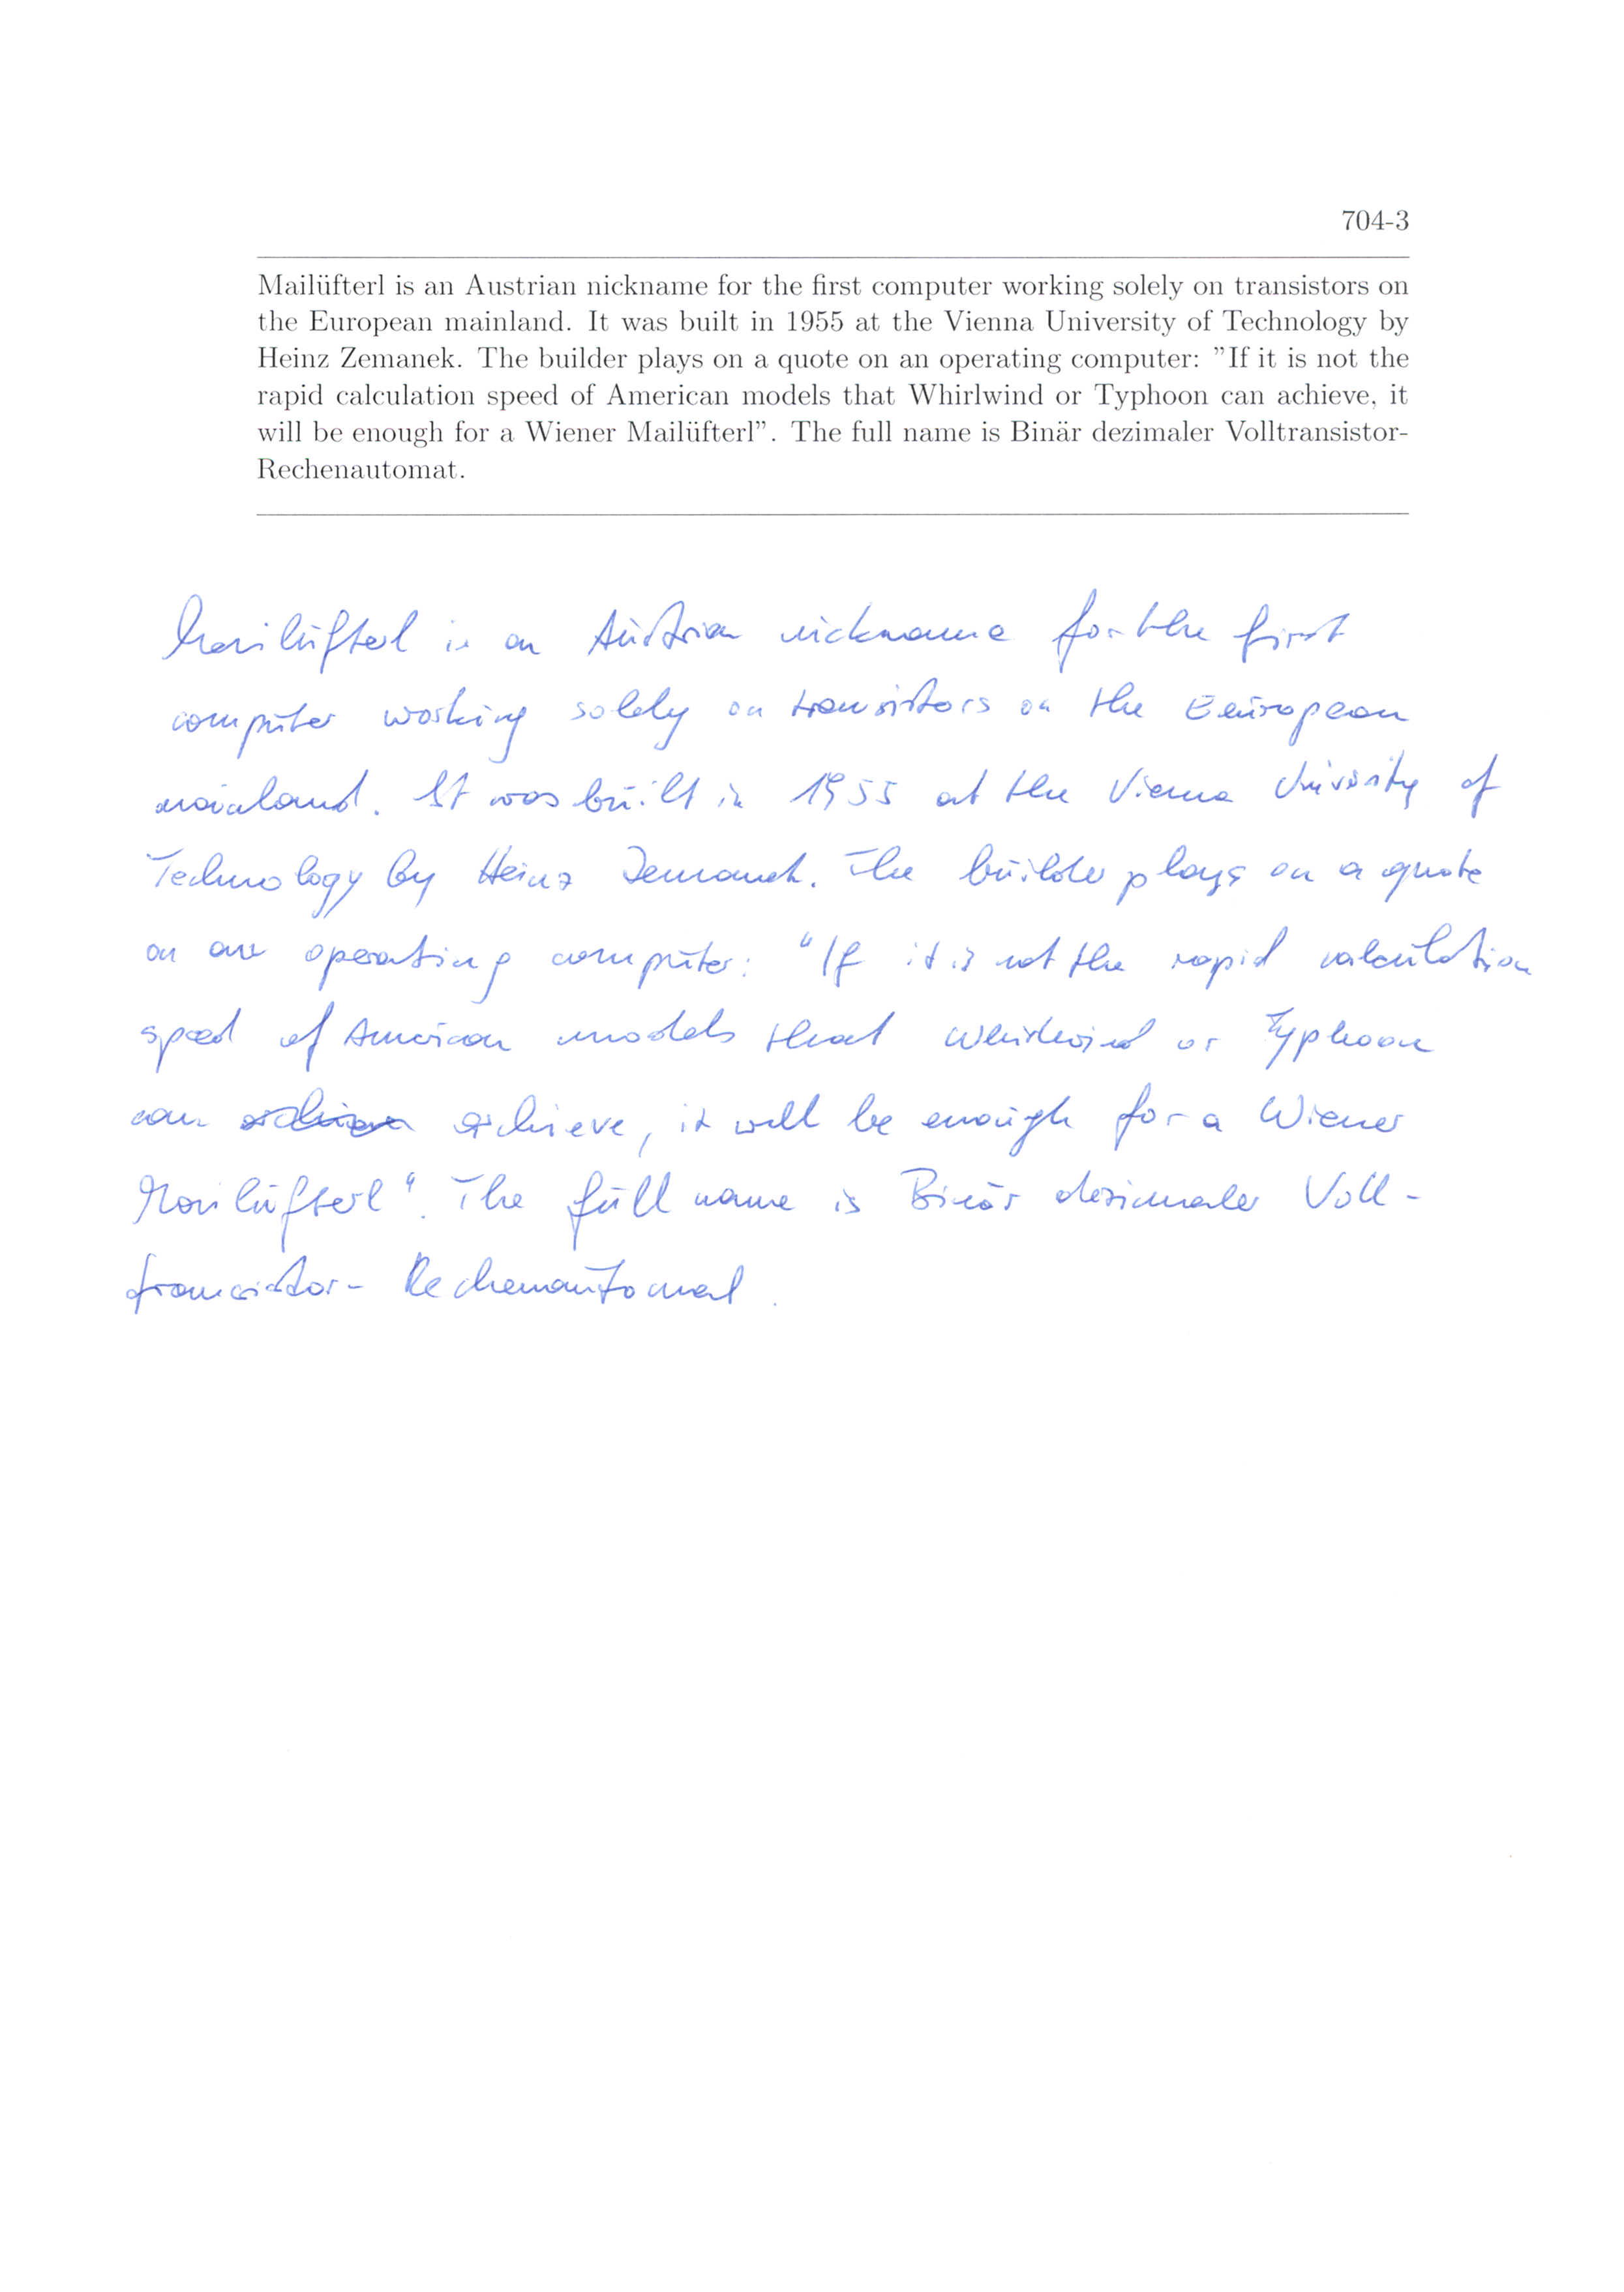 704-3
Mailüfterl is an Austrian nickname for the first computer working solely on transistors on
the European mainland. It was built in 1955 at the Vienna University of Technology by
Heinz Zemanek. The builder plays on a quote on an operating computer: ”If it is not the
rapid calculation speed of American models that Whirlwind or Typhoon can achieve, it
will be enough for a Wiener Mailüfterl”. The full name is Binär dezimaler Volltransistor-
Rechenautomat.
Mailüfterl is an Austrian nickname for the first
computer working solely on transistors on the Eeuropean
mainland. It was built in 1955 at the Vienna University of
Technology by Heinz Zemanek. The builder plays on a quote
on an operating computer: “If it is not the rapid calculation
speed of American models that Whirlwind or Typhoon
can achieve, it will be enough for a Wiener
Mailüfterl“. The full name is Binär dezimaler Voll-
transistor- Rechenautomat.